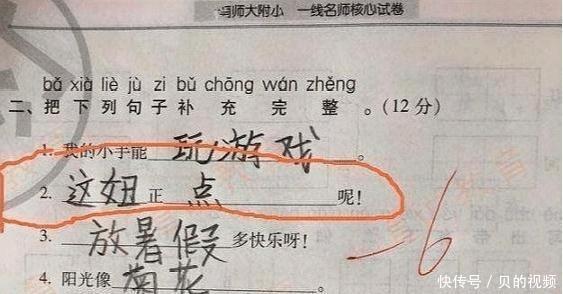 师大附小 一线名师核心试卷
bǎ xià liè jù zi bǔ chōng wán zhěng
二、把下列句子补充完整。(12分)
1. 我的小手能 玩游戏 。
2. 这妞正 点 呢!
3. 放暑假 多快乐呀!
4. 阳光像 菊花
-6
快传号／贝的视频